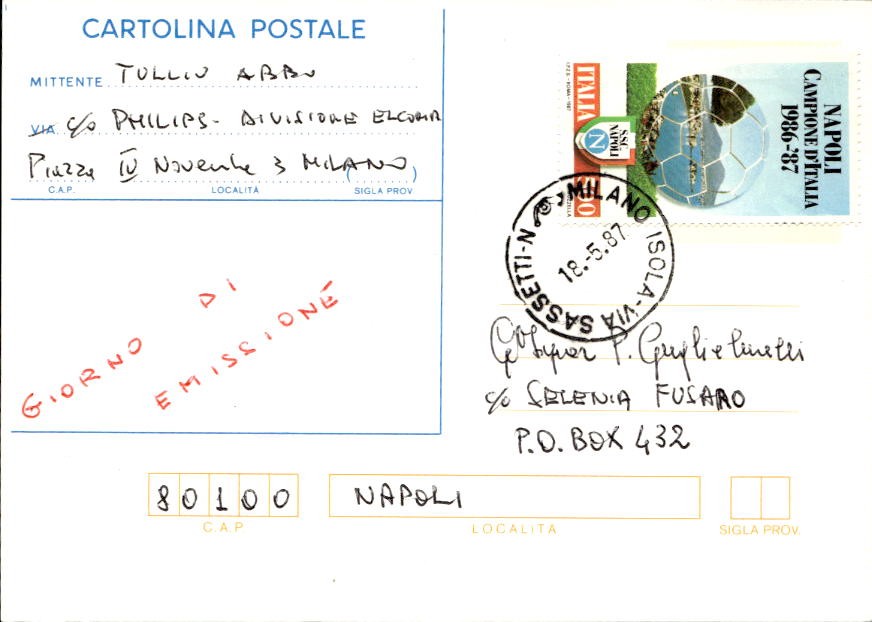 CARTOLINA POSTALE
MITTENTE TULLIO ABBO
VIA c/o PHILIPS - DIVISIONE ELCOMA
Piazza IV Novembre 3 MILANO ( )
C.A.P. LOCALITÀ SIGLA PROV.
GIORNO DI
EMISSIONE
NAPOLI
CAMPIONE D'ITALIA
1986-'87
SSC NAPOLI
N
ITALIA
I.P.Z.S. - ROMA - 1987
MILANO ISOLA-VIA SASSETTI-N
18.-5.87
Signor P. Guglielmelli
c/o SELENIA FUSARO
P.O. BOX 432
80100 NAPOLI
C.A.P. LOCALITÀ SIGLA PROV.